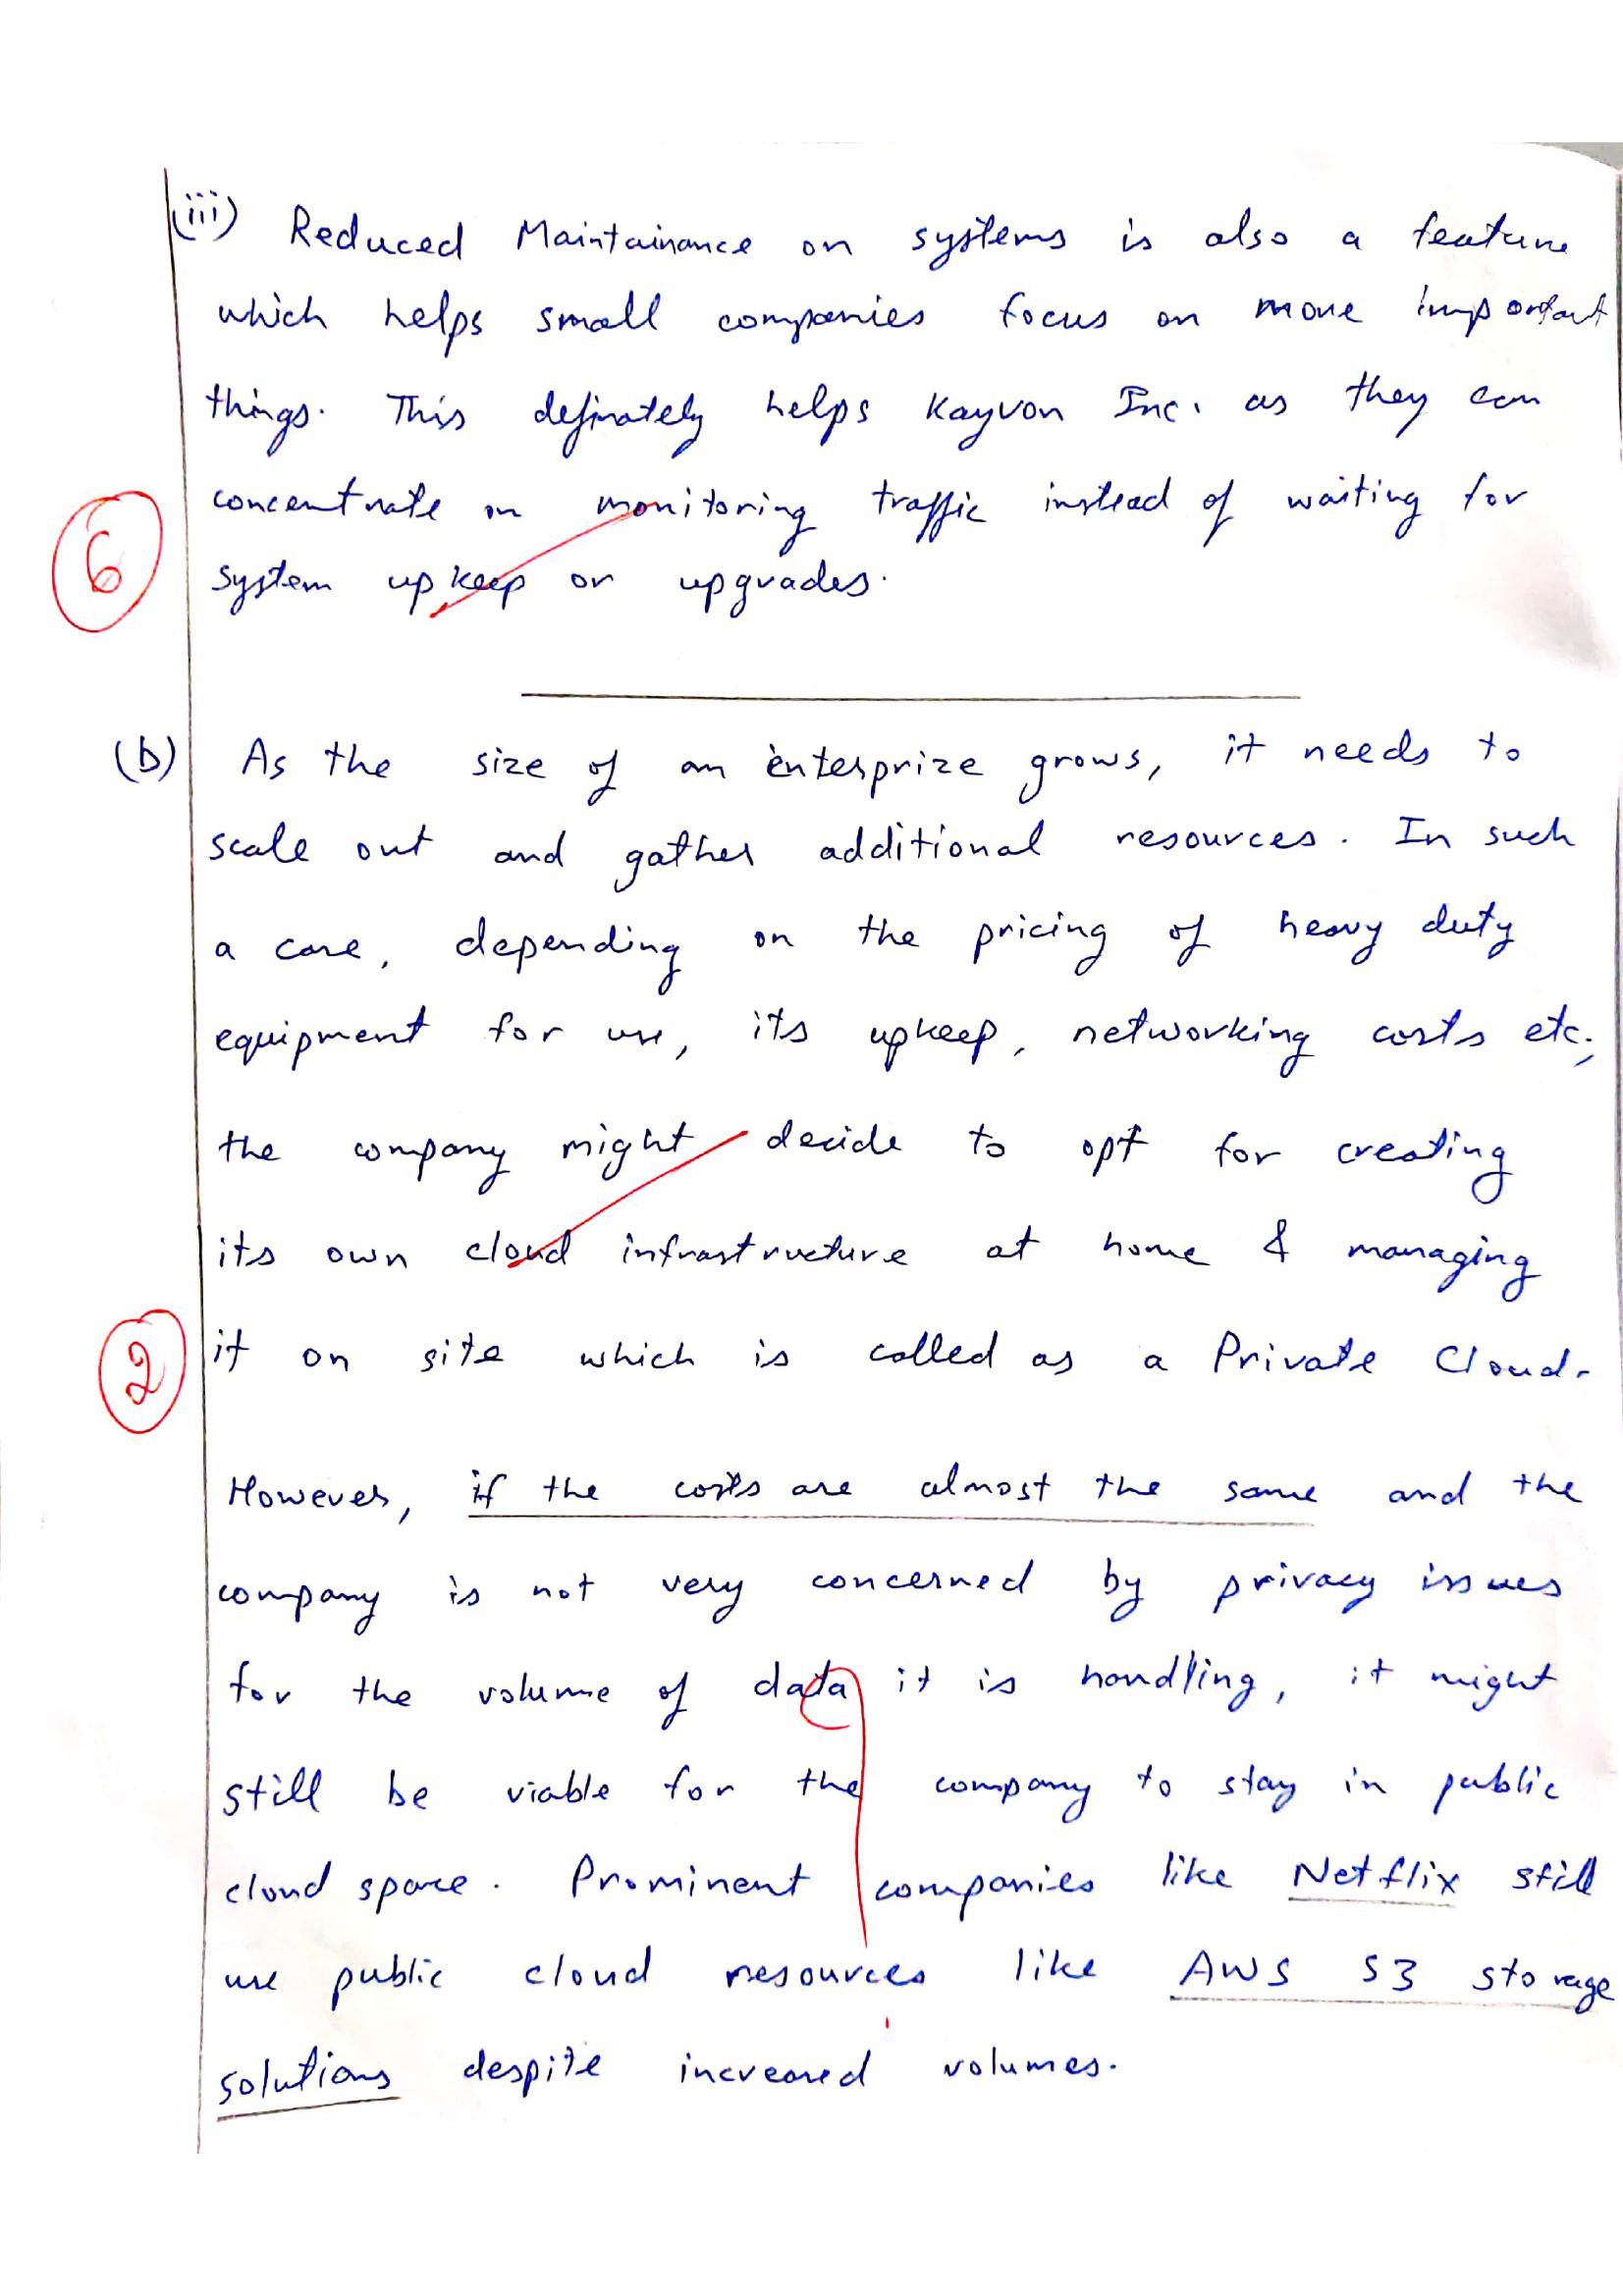 (iii) Reduced Maintainance on systems is also a feature
which helps small companies focus on more important
things. This definately helps Kayvon Inc. as they can
concentrate on monitoring traffic instead of waiting for
6
system upkeep or upgrades.
(b) As the size of an enterprize grows, it needs to
scale out and gather additional resources. In such
a case, depending on the pricing of heavy duty
equipment for use, its upkeep, networking costs etc.,
the company might decide to opt for creating
its own cloud infrastructure at home & managing
2
it on site which is called as a Private Cloud.
However, if the costs are almost the same and the
company is not very concerned by privacy issues
for the volume of data it is handling, it might
still be viable for the company to stay in public
cloud space. Prominent companies like Netflix still
use public cloud resources like AWS S3 storage
solutions despite increased volumes.